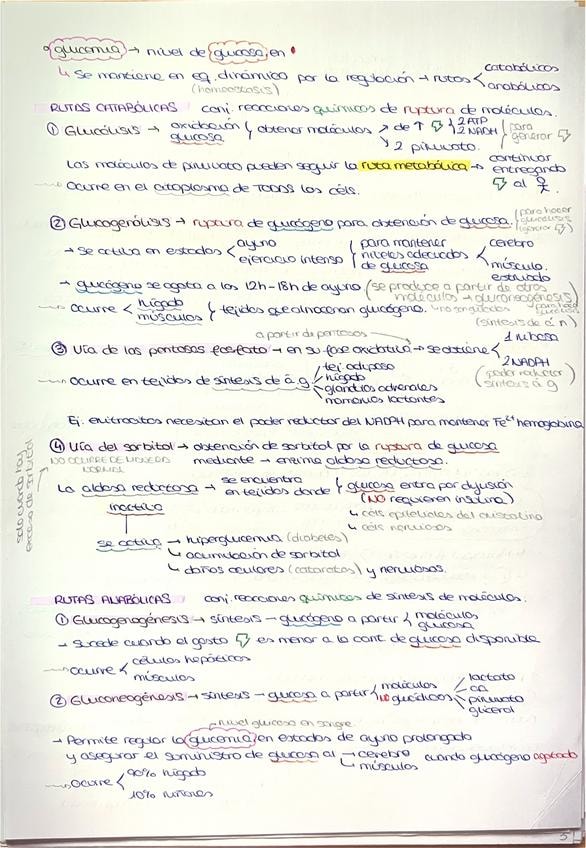 glucemia → nivel de glucosa en
↳ Se mantiene en eq. dinámico por la regulación → rutas < catabólicas
anabólicas
(homeostasis)
RUTAS CATABÓLICAS conj. reacciones químicas de ruptura de moléculas.
① Glucólisis → oxidación glucosa { obtener moléculas > de ↑ { 2 ATP
2 NADH
2 piruvato.
(para generar
Las moléculas de piruvato pueden seguir la ruta metabólica → continuar entregando al
Ocurre en el citoplasma de TODAS las céls.
② Glucogenólisis → ruptura de glucógeno para obtención de glucosa.
(para hacer glucólisis
→ Se activa en estados < ayuno
ejercicio intenso
{ para mantener niveles adecuados de glucosa
< cerebro
músculo estriado
→ glucógeno se agota a las 12h-18h de ayuno (se produce a partir de otras moléculas → gluconeogénesis)
Ocurre < hígado
músculos
{ tejidos que almacenan glucógeno.
a partir de pentosas
③ Vía de las pentosas fosfato → en su fase oxidativa → se obtiene < 1 ribosa
2 NADPH
(poder reductor síntesis á.g
Ocurre en tejidos de síntesis de á.g. tej. adiposo
hígado
glándulas adrenales
mamarias lactantes
Ej. eritrocitos necesitan el poder reductor del NADPH para mantener Fe²⁺ hemoglobina
④ Vía del sorbitol → obtención de sorbitol por la ruptura de glucosa
NO OCURRE DE MANERA NORMAL
mediante → enzima aldosa reductasa.
solo cuando hay exceso de sorbitol
La aldosa reductasa → se encuentra en tejidos donde { glucosa entra por difusión
(NO requieren insulina)
inactiva
↳ céls epiteliales del cristalino
↳ céls nerviosas
se activa → hiperglucemia (diabetes)
↳ acumulación de sorbitol
↳ daños oculares (cataratas) y nerviosos.
RUTAS ANABÓLICAS conj. reacciones químicas de síntesis de moléculas.
① Glucogenogénesis → síntesis - glucógeno a partir < moléculas glucosa
→ Sucede cuando el gasto es menor a la cant. de glucosa disponible
Ocurre < células hepáticas
músculos
② Gluconeogénesis → síntesis - glucosa a partir < moléculas NO glucídicas
lactato
aa
piruvato
glicerol
nivel glucosa en sangre
→ Permite regular la glucemia en estados de ayuno prolongado
y asegurar el suministro de glucosa al → cerebro
→ músculos
cuando glucógeno agotado
Ocurre < 90% hígado
10% riñones
5